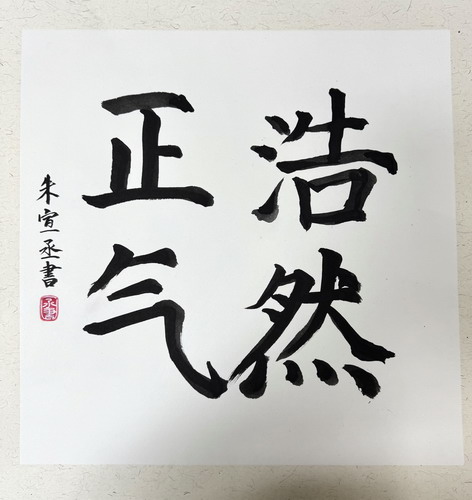 浩然
正气
朱宣丞書